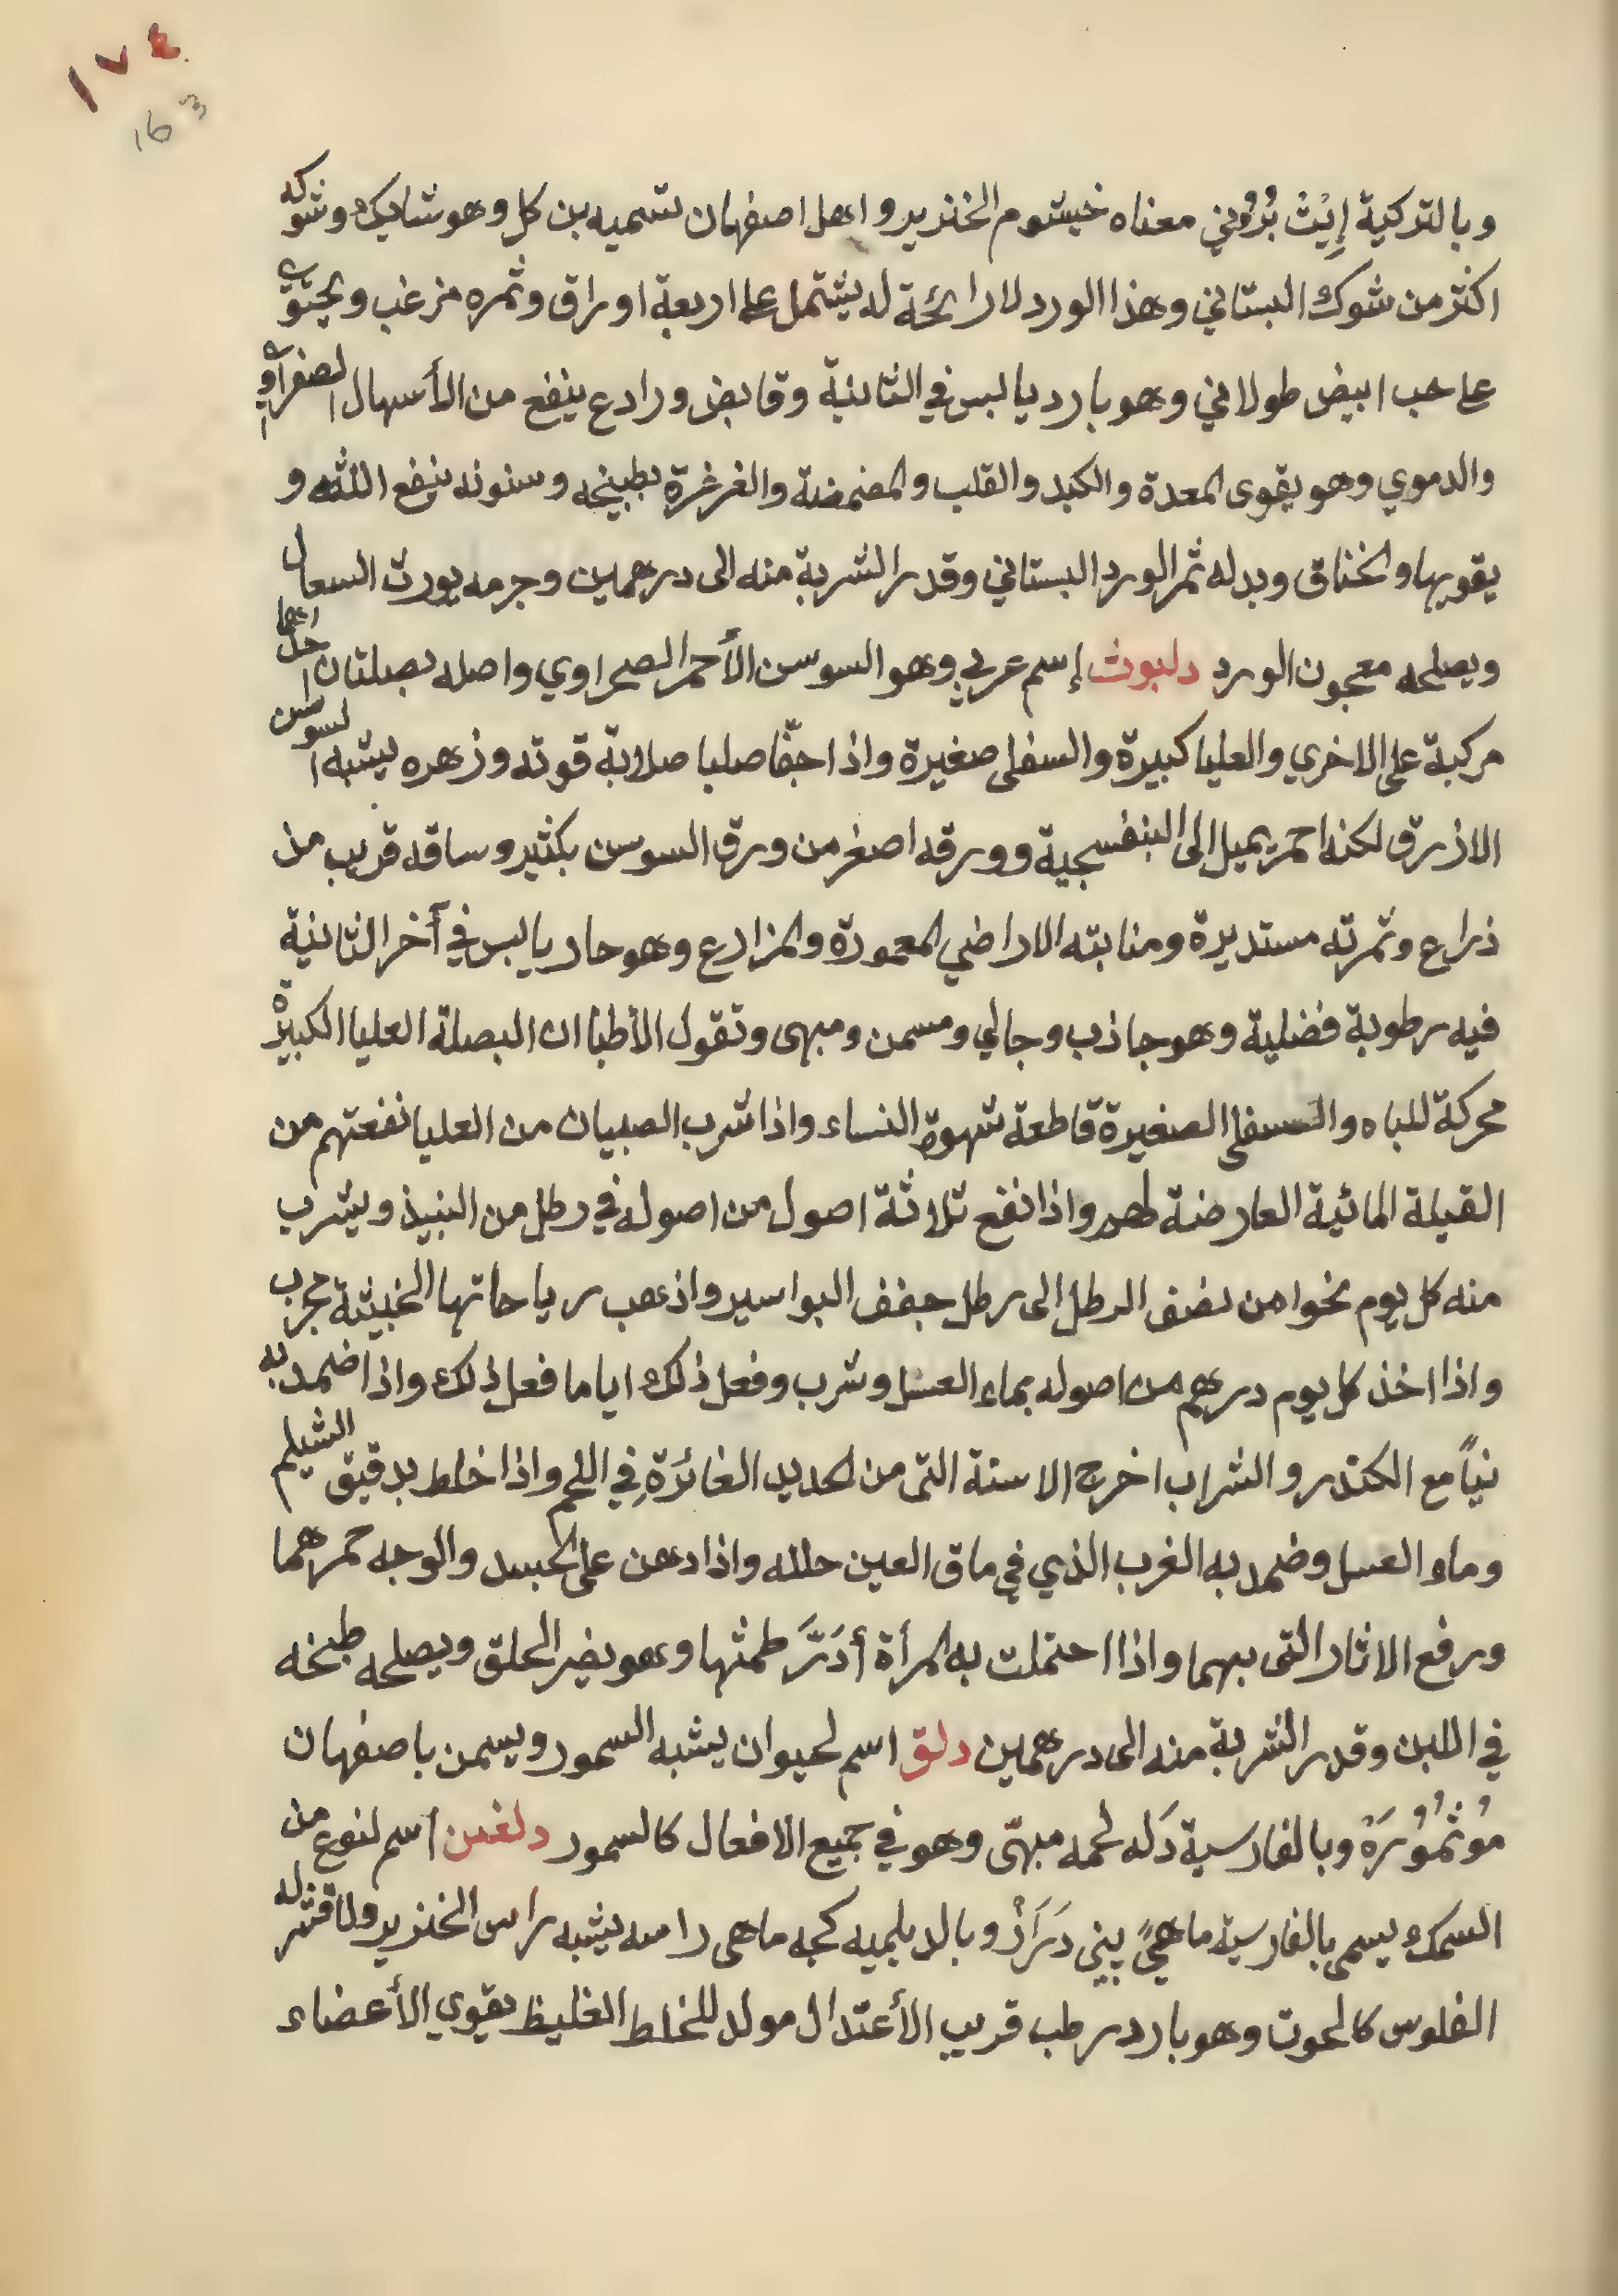 ١٧٤
163
وبالتركية إِيْتْ بُرُوني معناه خيشوم الخنزير واهل اصفهان تسميه بن كل وهو شايك وشوكه
اكثر من شوك البستاني وهذا الورد لا رائحة له يشتمل على اربعة اوراق وثمره مزغب ويحتوي
على حب ابيض طولاني وهو بارد يابس في الثانية وقابض ورادع ينفع من الأسهال الصفراوي
والدموي وهو يقوى المعدة والكبد والقلب والمضمضة والغرغرة بطبيخه وسنونه ينفع اللثه و
يقويها والخناق وبدله ثمر الورد البستاني وقدر الشربة منه الى درهمين وجرمه يورث السعال
ويصلحه معجون الورد دلبوث إسم عربي وهو السوسن الأحمر الصحراوي واصله بصلتان احداهما
مركبة على الاخري والعليا كبيرة والسفلى صغيرة واذا جفا صلبا صلابة قوته وزهره يشبه السوسن
الازرق لكنه احمر يميل الى البنفسجية وورقه اصغر من ورق السوسن بكثير وساقه قريب من
ذراع وثمرته مستديرة ومنابته الاراضي المعمورة والمزارع وهو حار يابس في آخر الثانية
فيه رطوبة فضلية وهو جاذب وجالي ومسمن ومبهى وتقول الأطبا ان البصلة العليا الكبيرة
محركة للباه والسفلى الصغيرة قاطعة شهوة النساء واذا شرب الصبيان من العليا نفعتهم من
القيلة المائية العارضة لهم واذا نقع ثلاثة اصول من اصوله في رطل من النبيذ ويشرب
منه كل يوم نحوا من نصف الرطل الى رطل جفف البواسير واذهب رياحاتها الخبيثة مجرب
واذا اخذ كل يوم درهم من اصوله بماء العسل وشرب وفعل ذلك اياما فعل ذلك واذا ضمد به
نيأً مع الكندر والشراب اخرج الاسنة التى من الحديد الغائرة في اللحم واذا خلط بدقيق الشيلم
وماء العسل وضمد به الغرب الذي في ماق العين حلله واذا دهن على الجسد والوجه حمرهما
ورفع الاثار التى بهما واذا احتملت به المرأة أدَرَّ طمثها وهو يضر الحلق ويصلحه طبخه
في اللبن وقدر الشربة منه الى درهمين دلق اسم لحيوان يشبه السمور ويسمن باصفهان
مُوثمُورَه وبالفارسية دَله لحمه مبهّى وهو في جميع الافعال كالسمور دلفين اسم لنوع من
السمك يسمى بالفارسية ماهيً بيني دَرَازْ وبالديلميه كجه ماهى راسه يشبه راس الخنزير ولا قشر له
الفلوس كالحوت وهو بارد رطب قريب الأعتدال مولد للخلط الغليظ يقوي الأعضاء